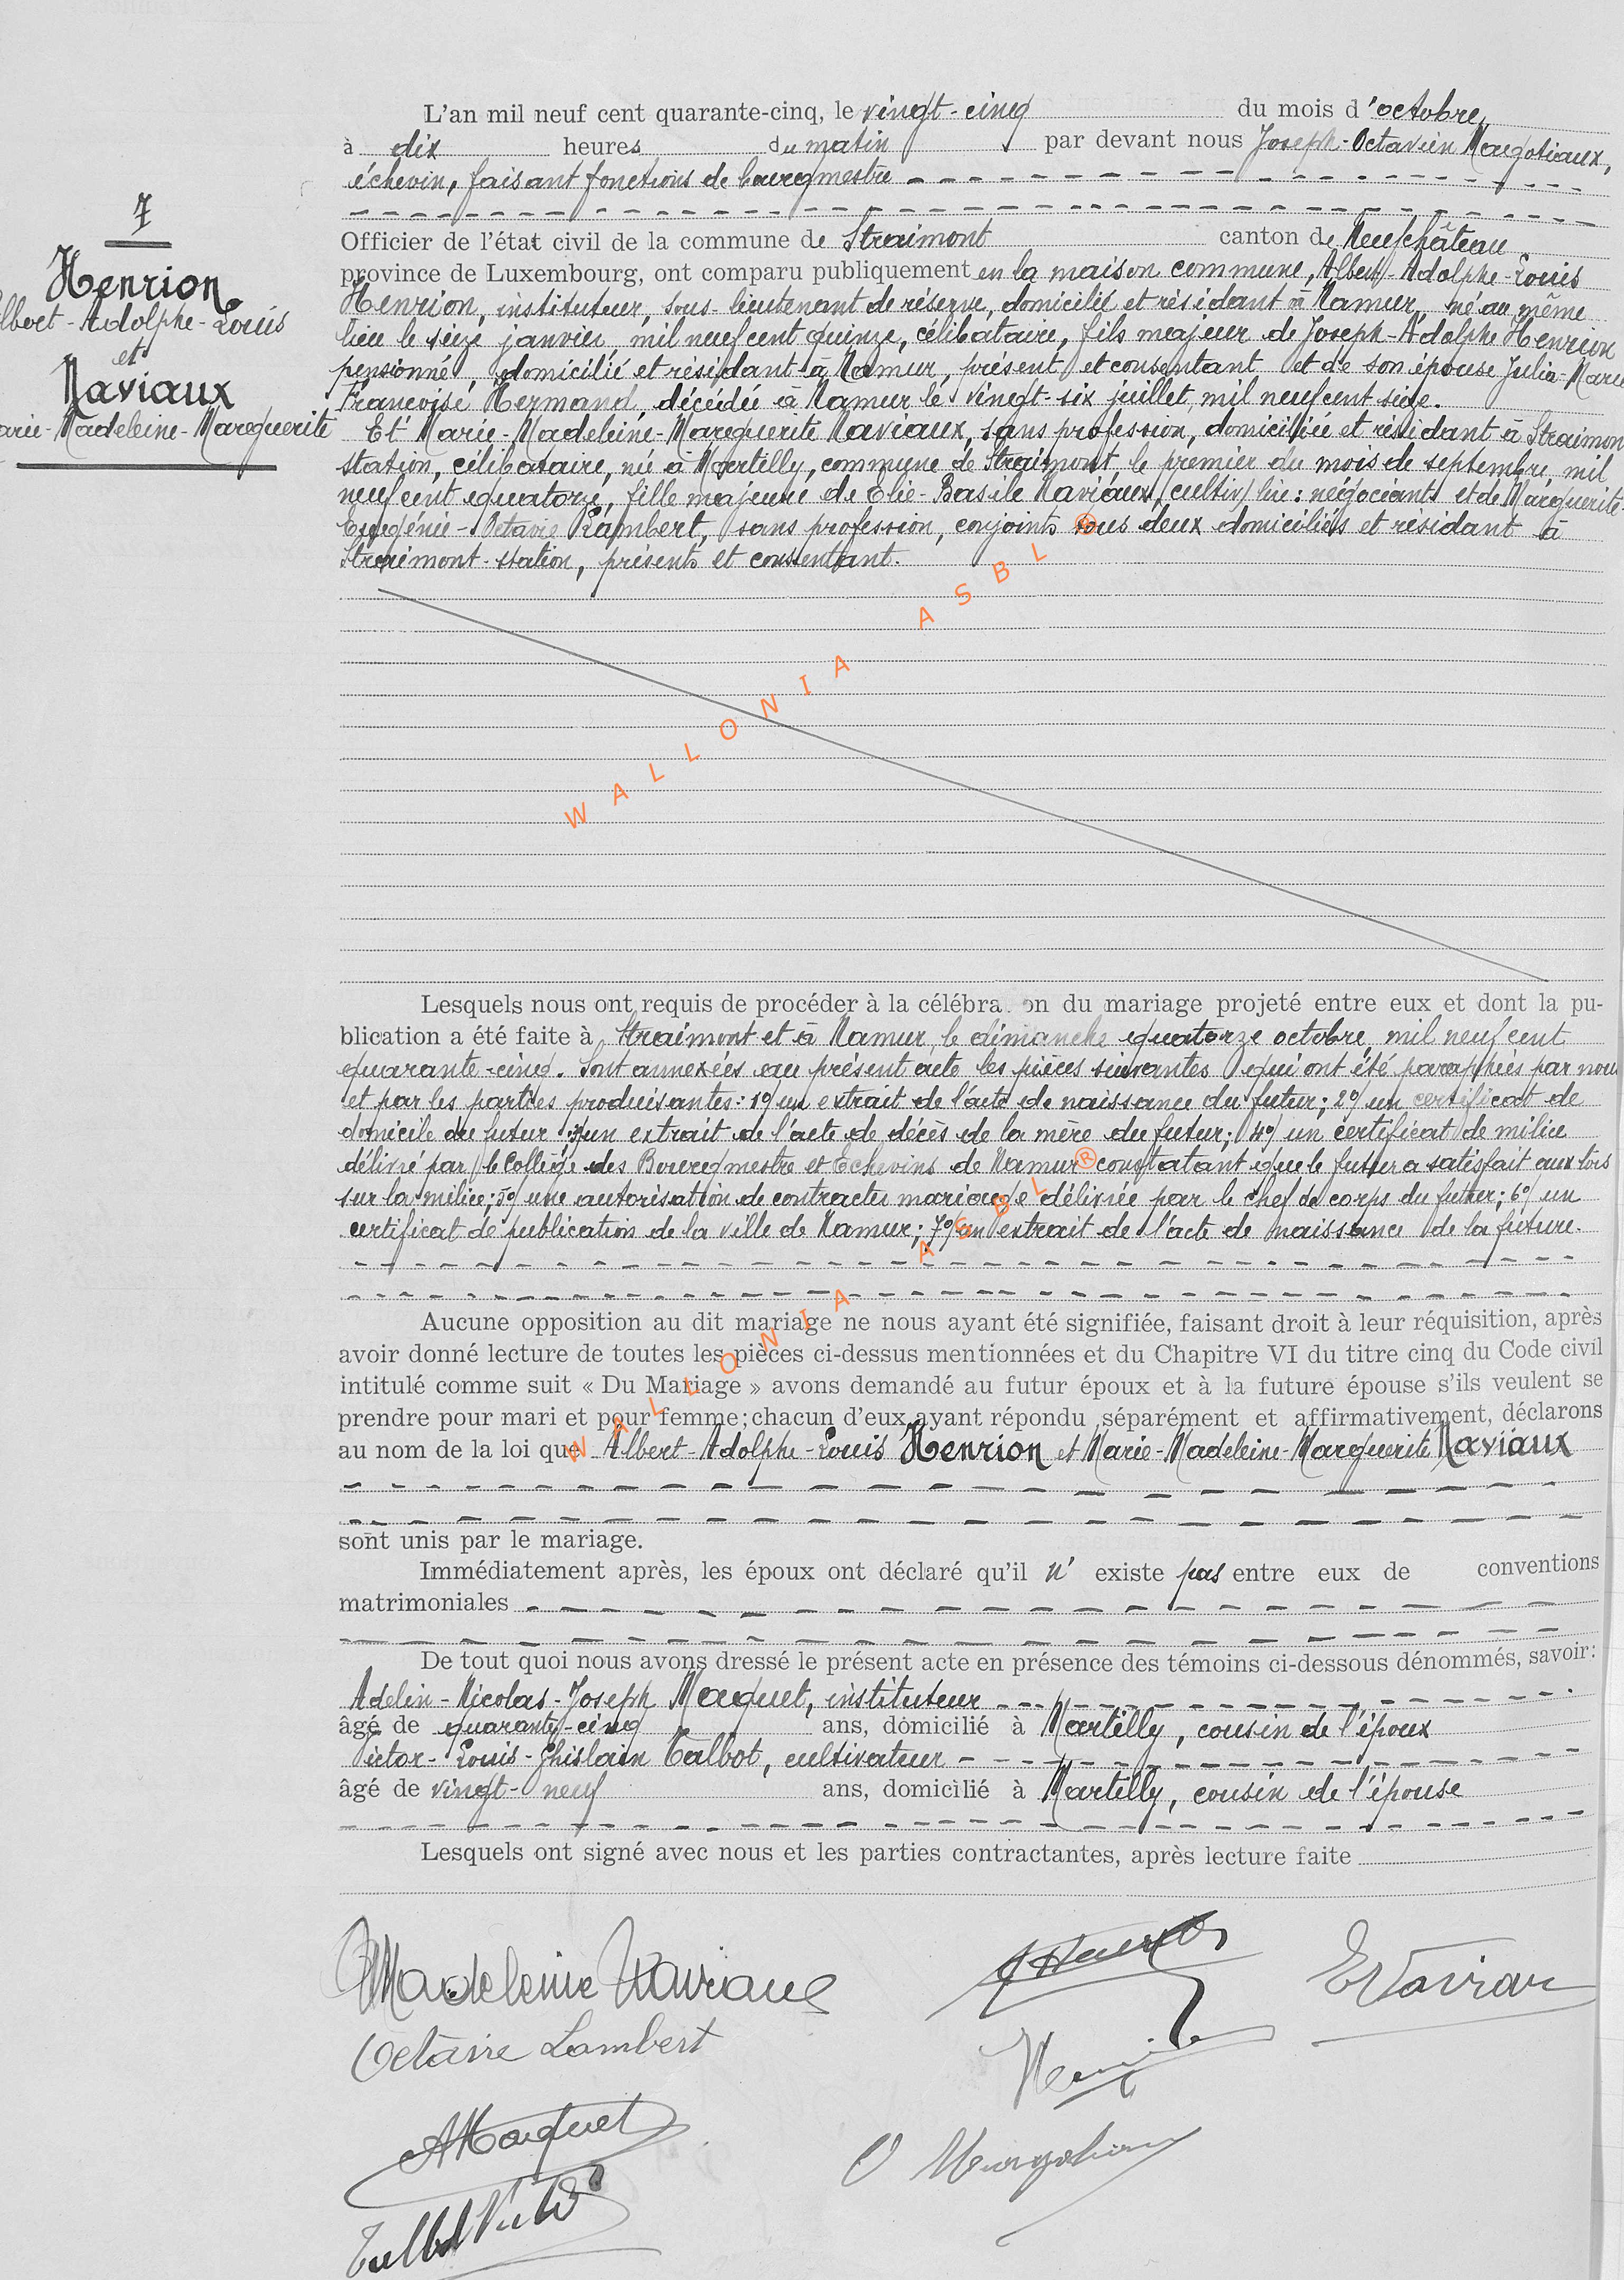 L'an mil neuf cent quarante-cinq, le vingt-cinq du mois d'octobre,
à dix heures du matin par devant nous Joseph-Octavien Margotiaux,
échevin, faisant fonctions de bourgmestre
7
Officier de l'état civil de la commune de Straimont canton de Neufchâteau
Henrion
province de Luxembourg, ont comparu publiquement en la maison commune, Albert-Adolphe-Louis
lbert-Adolphe-Louis
Henrion, instituteur, sous-lieutenant de réserve, domicilié et résidant à Namur, né au même
et
lieu le seize janvier mil neuf cent quinze, célibataire, fils majeur de Joseph-Adolphe Henrion
Naviaux
pensionné, domicilié et résidant à Namur, présent et consentant et de son épouse Julia-Marie
Françoise Hermand, décédée à Namur le vingt-six juillet mil neuf cent seize.
arie-Madeleine-Marguerite
Et Marie-Madeleine-Marguerite Naviaux, sans profession, domiciliée et résidant à Straimon
station, célibataire, née à Martilly, commune de Straimont, le premier du mois de septembre, mil
neuf cent quatorze, fille majeure de Elie-Basile Naviaux, (cultiv) lire: négociant et de Marguerite-
Eugénie-Octavie Lambert, sans profession, conjoints tous deux domiciliés et résidant à
Straimont-station, présents et consentant.
WALLONIA ASBL ®
Lesquels nous ont requis de procéder à la célébra on du mariage projeté entre eux et dont la pu-
blication a été faite à Straimont et à Namur, le dimanche quatorze octobre, mil neuf cent
quarante-cinq. Sont annexées au présent acte les pièces suivantes qui ont été paraphées par nous
et par les parties produisantes: 1º/ un extrait de l'acte de naissance du futur; 2º/ un certificat de
domicile du futur; 3º/ un extrait de l'acte de décès de la mère du futur; 4º/ un certificat de milice
délivré par le Collège des Bourgmestre et Echevins de Namur constatant que le futur a satisfait aux lois
sur la milice; 5º/ une autorisation de contracter mariage délivrée par le chef de corps du futur; 6º/ un
certificat de publication de la ville de Namur; 7º/ un extrait de l'acte de naissance de la future.
WALLONIA ASBL ®
Aucune opposition au dit mariage ne nous ayant été signifiée, faisant droit à leur réquisition, après
avoir donné lecture de toutes les pièces ci-dessus mentionnées et du Chapitre VI du titre cinq du Code civil
intitulé comme suit « Du Mariage » avons demandé au futur époux et à la future épouse s'ils veulent se
prendre pour mari et pour femme; chacun d'eux ayant répondu séparément et affirmativement, déclarons
au nom de la loi que Albert-Adolphe-Louis Henrion et Marie-Madeleine-Marguerite Naviaux
sont unis par le mariage.
Immédiatement après, les époux ont déclaré qu'il n' existe pas entre eux de conventions
matrimoniales
De tout quoi nous avons dressé le présent acte en présence des témoins ci-dessous dénommés, savoir:
Adelin-Nicolas-Joseph Maquet, instituteur
âgé de quarante-cinq ans, domicilié à Martilly, cousin de l'époux
Victor-Louis-Ghislain Talbot, cultivateur
âgé de vingt-neuf ans, domicilié à Martilly, cousin de l'épouse
Lesquels ont signé avec nous et les parties contractantes, après lecture faite
Madeleine Naviaux
E Naviaux
Octavie Lambert
A Maquet
Talbot Victor